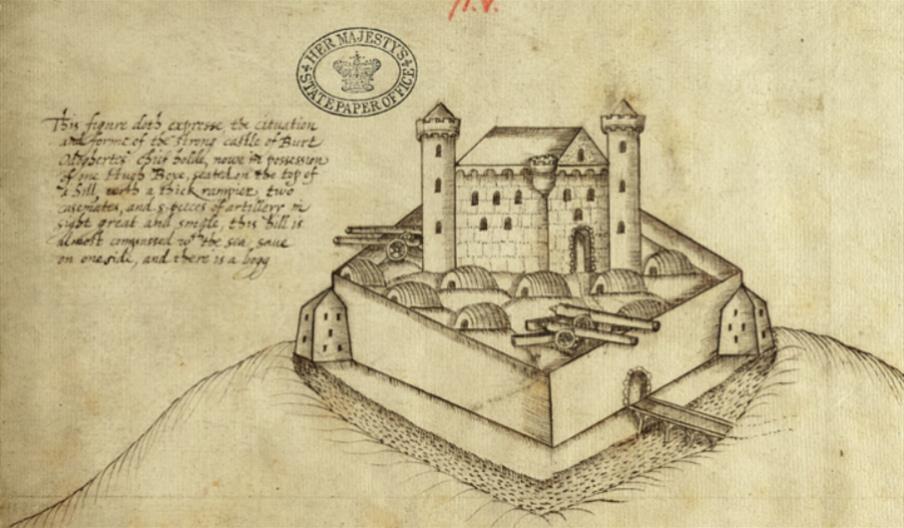 HER MAJESTY'S STATE PAPER OFFICE
This figure doth expresse the cituation
and forme of the strong castle of Burt
chief holde, nowe in possession
of one Hugh Boye, seated on the top of
a hill, with a thick rampier, two
casemates, and 5 peeces of artillery in
sight great and smale, this hill is
almost compassed wth the sea, save
on one side, and there is a bogg